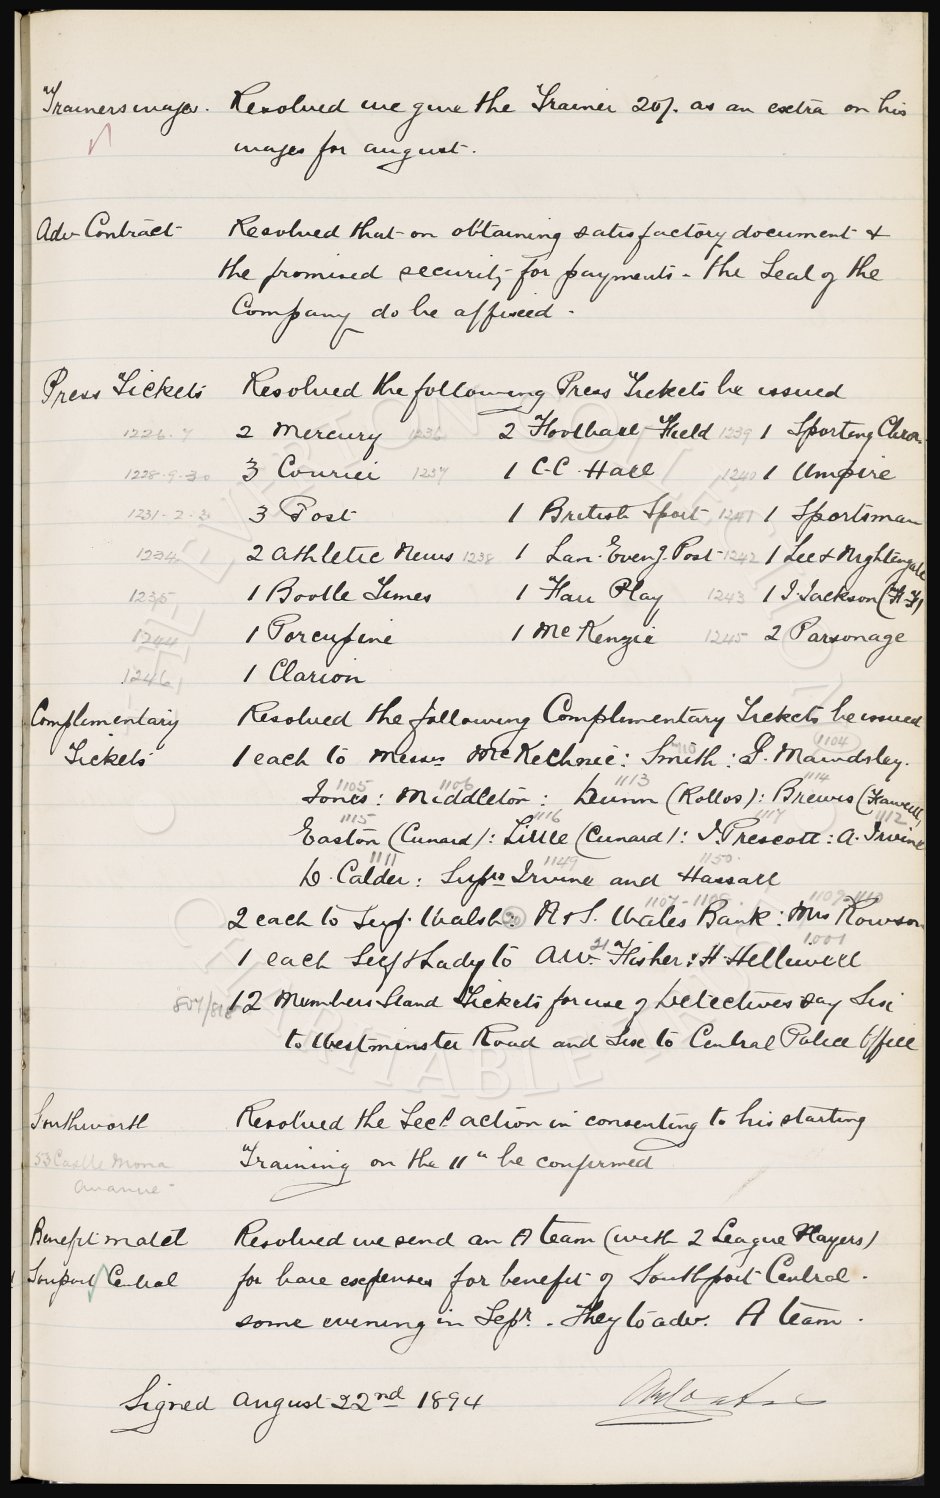 Trainers wages. Resolved we give the Trainer 20/. as an extra on his
wages for August.
Adv Contract Resolved that on obtaining satisfactory document &
the promised security for payments - the Seal of the
Company do be affixed.
Press Tickets Resolved the following Press Tickets be issued
1226.7 2 Mercury 1236 2 Football Field 1239 1 Sporting Chron.
1228.9.30 3 Courier 1237 1 C.C. Hall 1240 1 Umpire
1231.2.3 3 Post 1 British Sport 1241 1 Sportsman
1234 2 Athletic News 1238 1 Lan. Eveng. Post 1242 1 Lee & Nightengale
1235 1 Bootle Times 1 Fair Play 1243 1 J. Jackson (F.F)
1244 1 Porcupine 1 McKenzie 1245 2 Parsonage
1246 1 Clarion
Complimentary Resolved the following Complimentary Tickets be issued
Tickets 1 each to Messrs McKechnie: Smith: G. Mawdsley. 1104
1105 1106 1113 1114
Jones: Middleton: Dunn (Rollos): Brewis (
1115 1116 1117 1112
Easton (Cunard): Little (Cunard): J. Prescott: A. Irvine
1111 1149 1150
D. Calder: Supts Irvine and Hassall
1107-1108 1109-1110
2 each to Walsh: N & S. Wales Bank: Mrs Rowson
21 1001
1 each Self & Lady to A.W. Fisher: H. Helliwell
807/818 12 Members Stand Tickets for use of Detectives say Six
to Westminster Road and Six to Central Police Office
Southworth Resolved the Secy action in consenting to his starting
53 Castle Mona Training on the 11" be confirmed
Avanue
Benefit match Resolved we send an A team (with 2 League Players)
Souport Central for bare expenses for benefit of Southport Central.
some evening in Sepr. They to adv. A team.
Signed August 22nd 1894